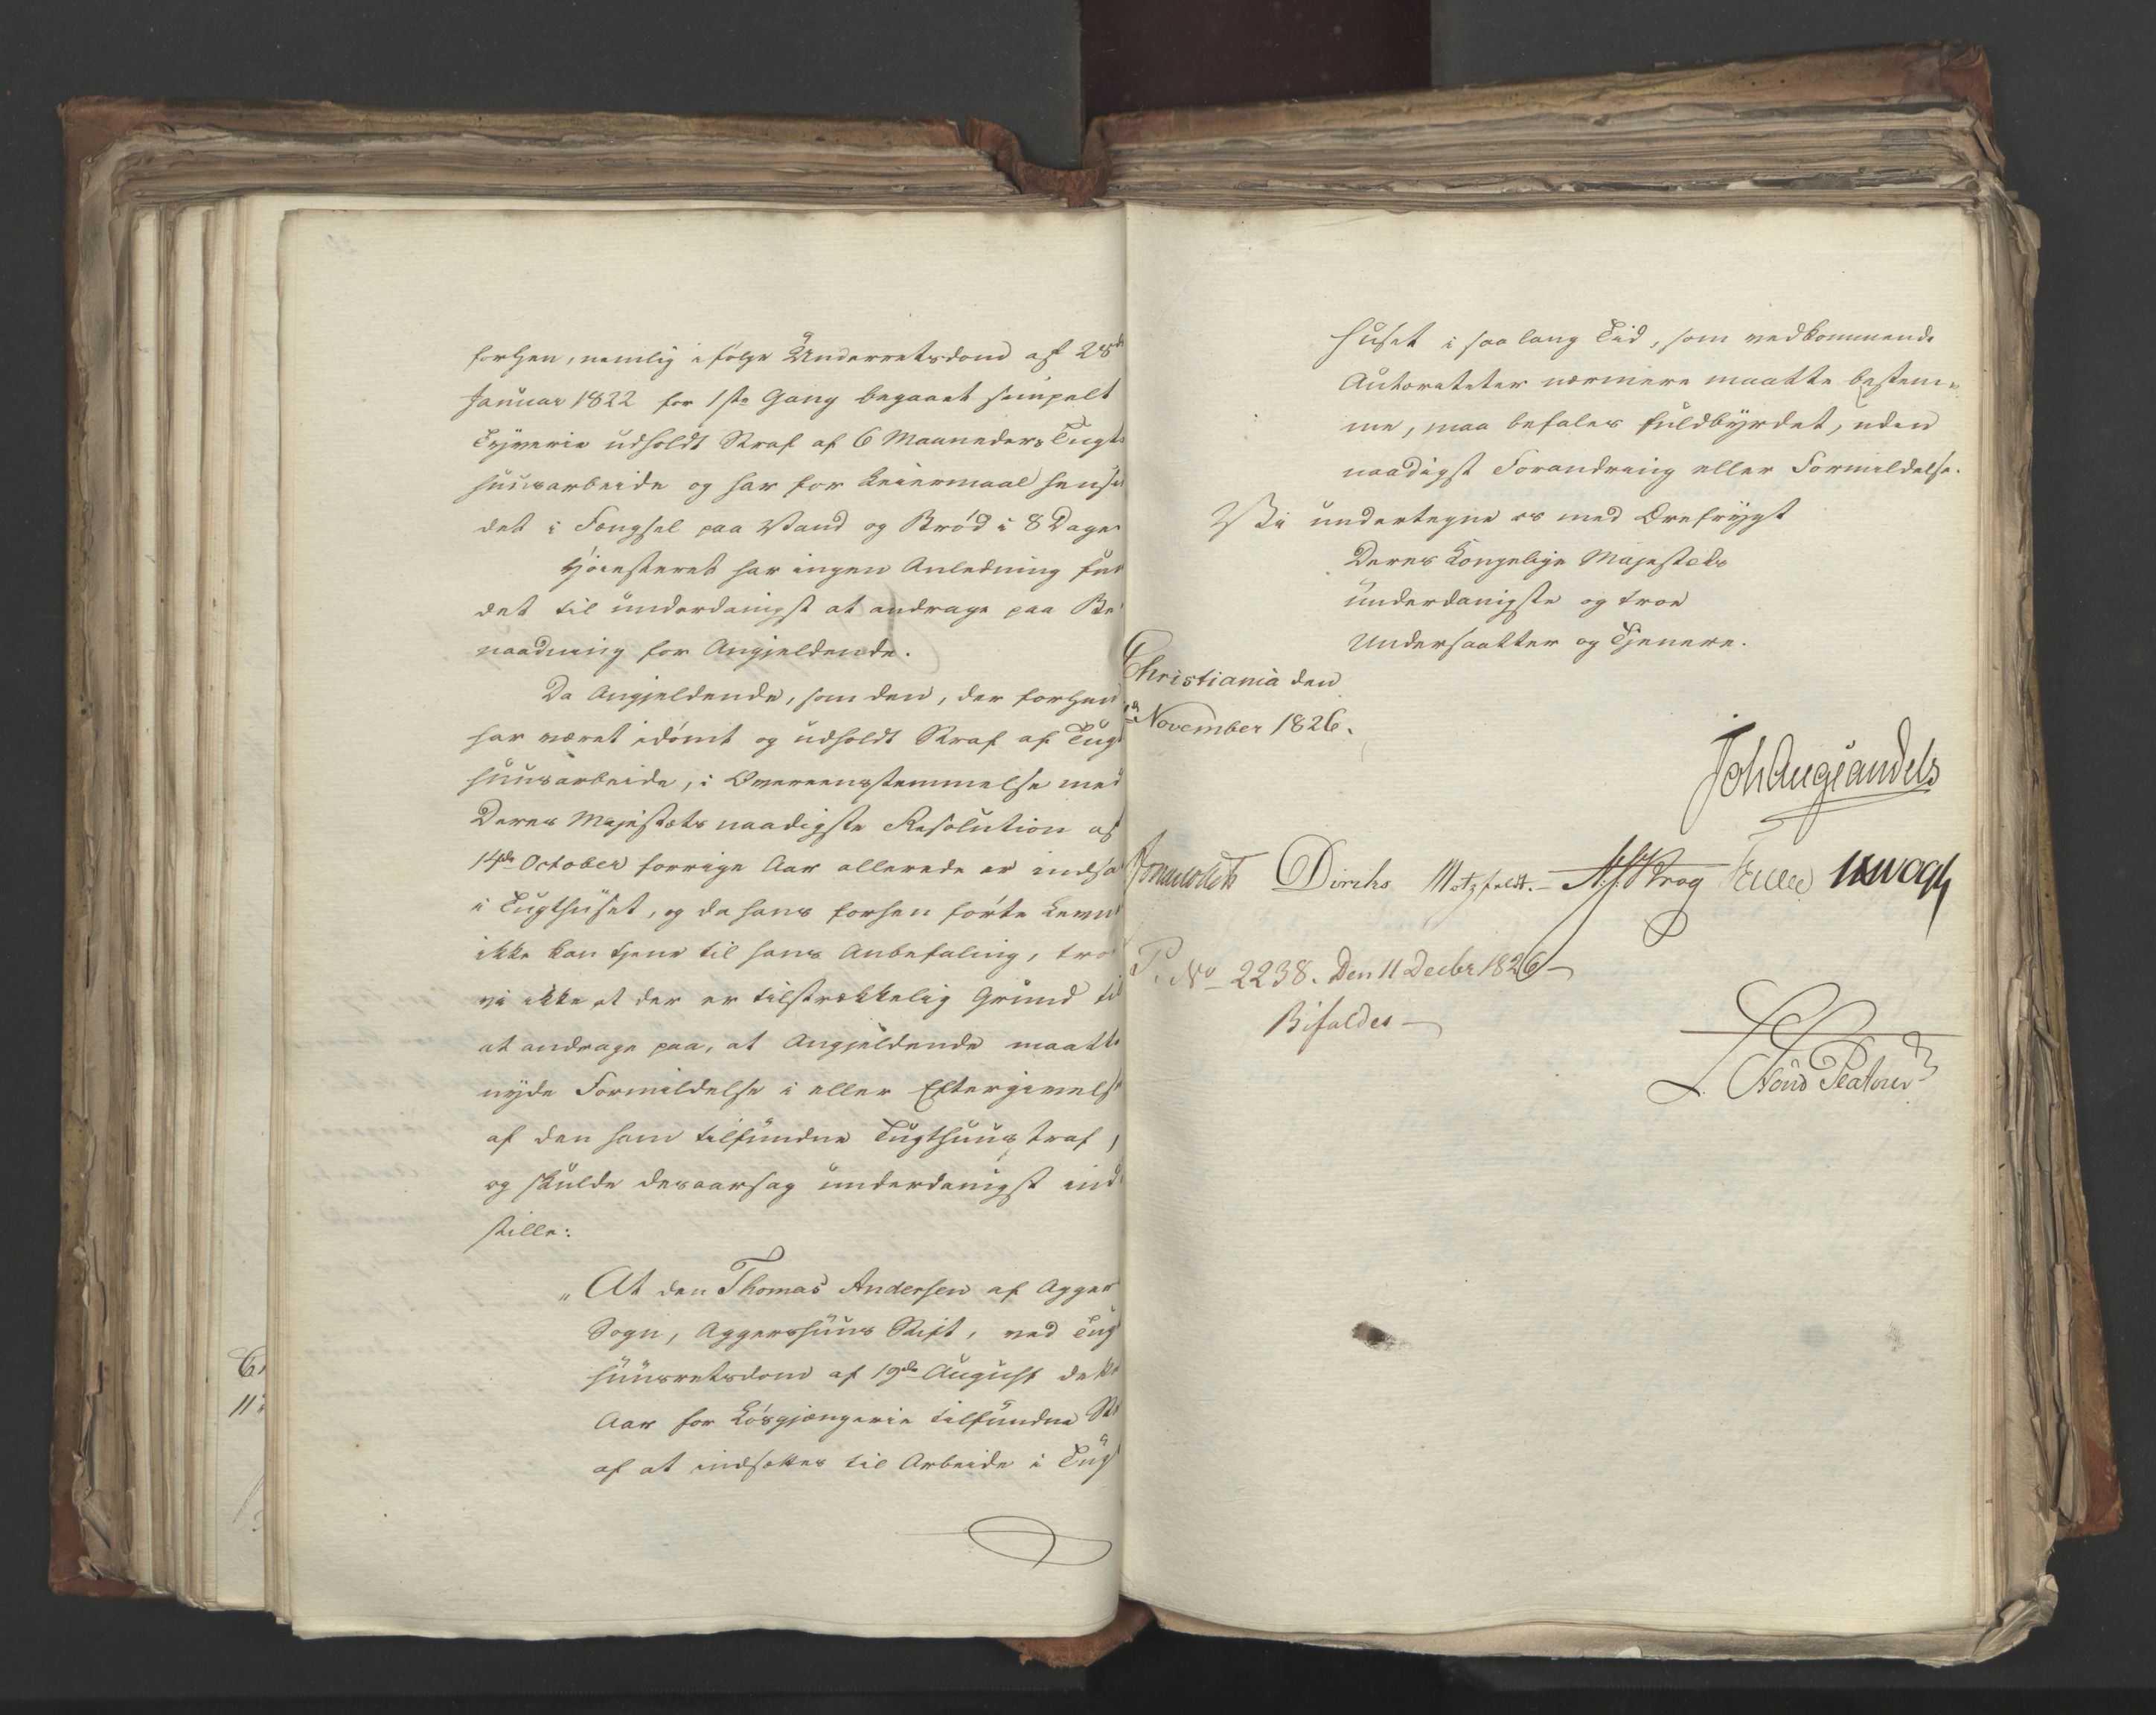 forhen, nemlig ifølge Underretsdom af 28de
Januar 1822 for 1ste Gang begaaet simpelt
Tyverie udholdt Straf af 6 Maaneders Tugt
huusarbeide og har for Leiermaal hensid
det i Fængsel paa Vand og Brød i 8 Dage
Høiesteret har ingen Anledning fun
det til underdanigst at andrage paa Be
naadning for Angjeldende.
Da Angjeldende, som den, der forhen
har været idømt og udholdt Straf af Tugt
huusarbeide, i Overeensstemmelse med
Deres Majestæts naadigste Resolution af
14de October forrige Aar allerede er indsa
i Tugthuset, og da hans forhen førte Levne
ikke kan tjene til hans Anbefaling, troe
vi ikke at der er tilstrækkelig Grund til
at andrage paa, at Angjeldende maatte
nyde Formildelse i eller Eftergivelse
af den ham tilfundne Tugthuusstraf,
og skulde desaarsag underdanigst ind
stille:
"At den Thomas Andersen af Agger
Sogn, Aggershuus Stift, ved Tugt
huusretsdom af 19de August dette
Aar for Løsgjængerie tilfundne Str
af at indsættes til Arbeide i Tugt
huset i saa lang Tid, som vedkommende
Autoriteter nærmere maatte bestem-
me, maa befales fuldbyrdet, uden
naadigst Forandring eller Formildelse.
Vi undertegne os med Ærefrygt
Deres Kongelige Majestæts
underdanigste og troe
Undersaatter og Tjenere.
Christiania den
November 1826.
Joh Aug Sandels
Sommerhielm Diriks Motzfeldt. Krog Fasting JHVogt
P. No 2238. Den 11 Decbr 1826
Bifaldes